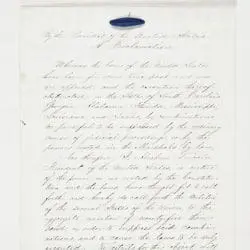 By the President of the United States
A Proclamation.
Whereas the laws of the United States
have been for some time past and now
are opposed, and the execution thereof
obstructed, in the States of South Carolina
Georgia, Alabama, Florida, Mississippi,
Louisiana and Texas, by combinations
too powerful to be suppressed by the ordinary
course of judicial proceedings, or by the
powers vested in the Marshals by law,
Now therefore, I, Abraham Lincoln,
President of the United States, in virtue
of the power in me vested by the Constitu-
tion, and the laws, have thought fit to call
forth and hereby do call forth, the militia
of the several States of the Union, to the
aggregate number of seventy-five thou-
sand, in order to suppress said combin-
ations, and to cause the laws to be duly
executed. The details for this object will